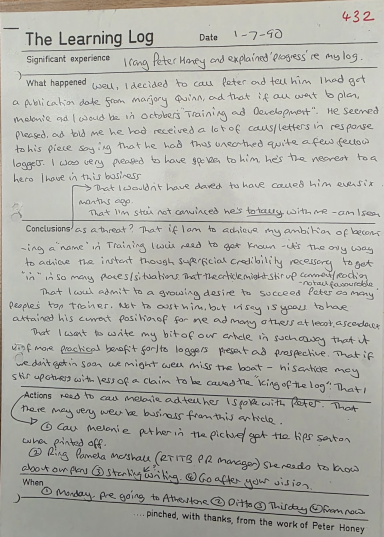 432
The Learning Log Date 1-7-90
Significant experience I rang Peter Honey and explained 'progress' re my log.
What happened Well, I decided to call Peter and tell him I had got
a publication date from Marjory Quinn, and that if all went to plan,
Melanie and I would be in October's "Training and Development". He seemed
pleased, and told me he had received a lot of calls/letters in response
to his piece saying that he had thus unearthed quite a few fellow
loggers. I was very pleased to have spoken to him, he's the nearest to a
hero I have in this business
That I wouldn't have dared to have called him even six
months ago.
That I'm still not convinced he's totally with me - am I seen
Conclusions as a threat? That if I am to achieve my ambition of becom-
-ing a "name" in Training I will need to get known - it's the only way
to achieve the instant though superficial credibility necessary to get
"in" in so many places/situations. That the article might stir up comment/reaction
- not all favourable
That I would admit to a growing desire to succeed Peter as many
peoples top trainer. Not to oust him, but in say 15 years to have
attained his current position for me and many others at least, ascendance
That I want to write my bit of our article in such a way that it
is of more practical benefit for/to loggers present and prospective. That if
we don't get in soon we might well miss the boat - his article may
stir up others with less of a claim to be called the 'King of the log'! That I
Actions need to call Melanie and tell her I spoke with Peter. That
there may very well be business from this article.
① Call Melanie put her in the picture/get the tips section
when printed off.
② Ring Pamela Marshall (RTITB P.R manager) she needs to know
about our plans ③ Starting writing. ④ Go after your vision.
When ① Monday, pre going to Atherstone ② Ditto ③ This day ④ From now
....pinched, with thanks, from the work of Peter Honey